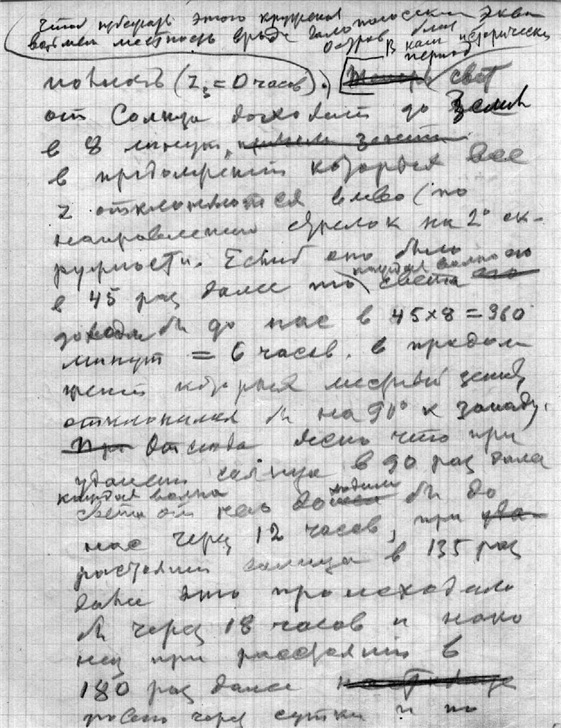 этого
возьмем местность вроде
остров был
В каш исторически
период
(Z = 0 часов). свет
от Солнца доходит до Земли
в 8 минут,
в продолжении которых все
Z отклоняются влево (по
направлению стрелок на 2° ок-
ружности. Если б оно было
в 45 раз далее то каждая волна его
света
доходила бы до нас в 45×8=360
минут = 6 часов. в продол
жении которых местный зенит
отклонился бы на 90° к западу.
Отсюда ясно что при
удалении солнца в 90 раз далее
каждая волна
света от него доходила бы до
нас через 12 часов, при
расстоянии солнца в 135 раз
далее это происходило
бы через 18 часов и нако
нец при расстоянии в
180 раз далее
ровно через сутки и по